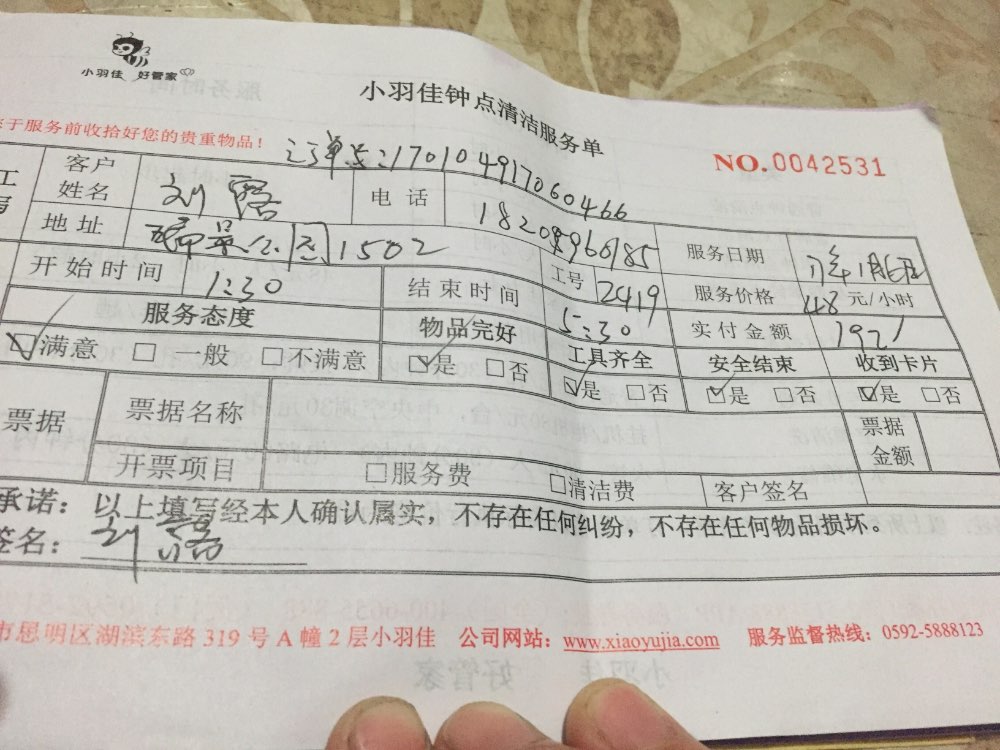 小羽佳 好管家
小羽佳钟点清洁服务单
于服务前收拾好您的贵重物品！
NO.0042531
订单号:17010491706 0466
工 客户姓名 刘露 电话
地址 1502 服务日期 17年1月6日
开始时间 1:30 结束时间 5:30 工号 2419 服务价格 48元/小时
服务态度 物品完好 工具齐全 实付金额 192 安全结束 收到卡片
☑满意 □一般 □不满意 ☑是 □否 ☑是 □否 ☑是 □否 ☑是 □否
票据 票据名称 票据金额
开票项目 □服务费 □清洁费 客户签名
承诺：以上填写经本人确认属实，不存在任何纠纷，不存在任何物品损坏。
签名：刘露
市思明区湖滨东路319号A幢2层小羽佳 公司网站：www.xiaoyujia.com 服务监督热线：0592-5888123